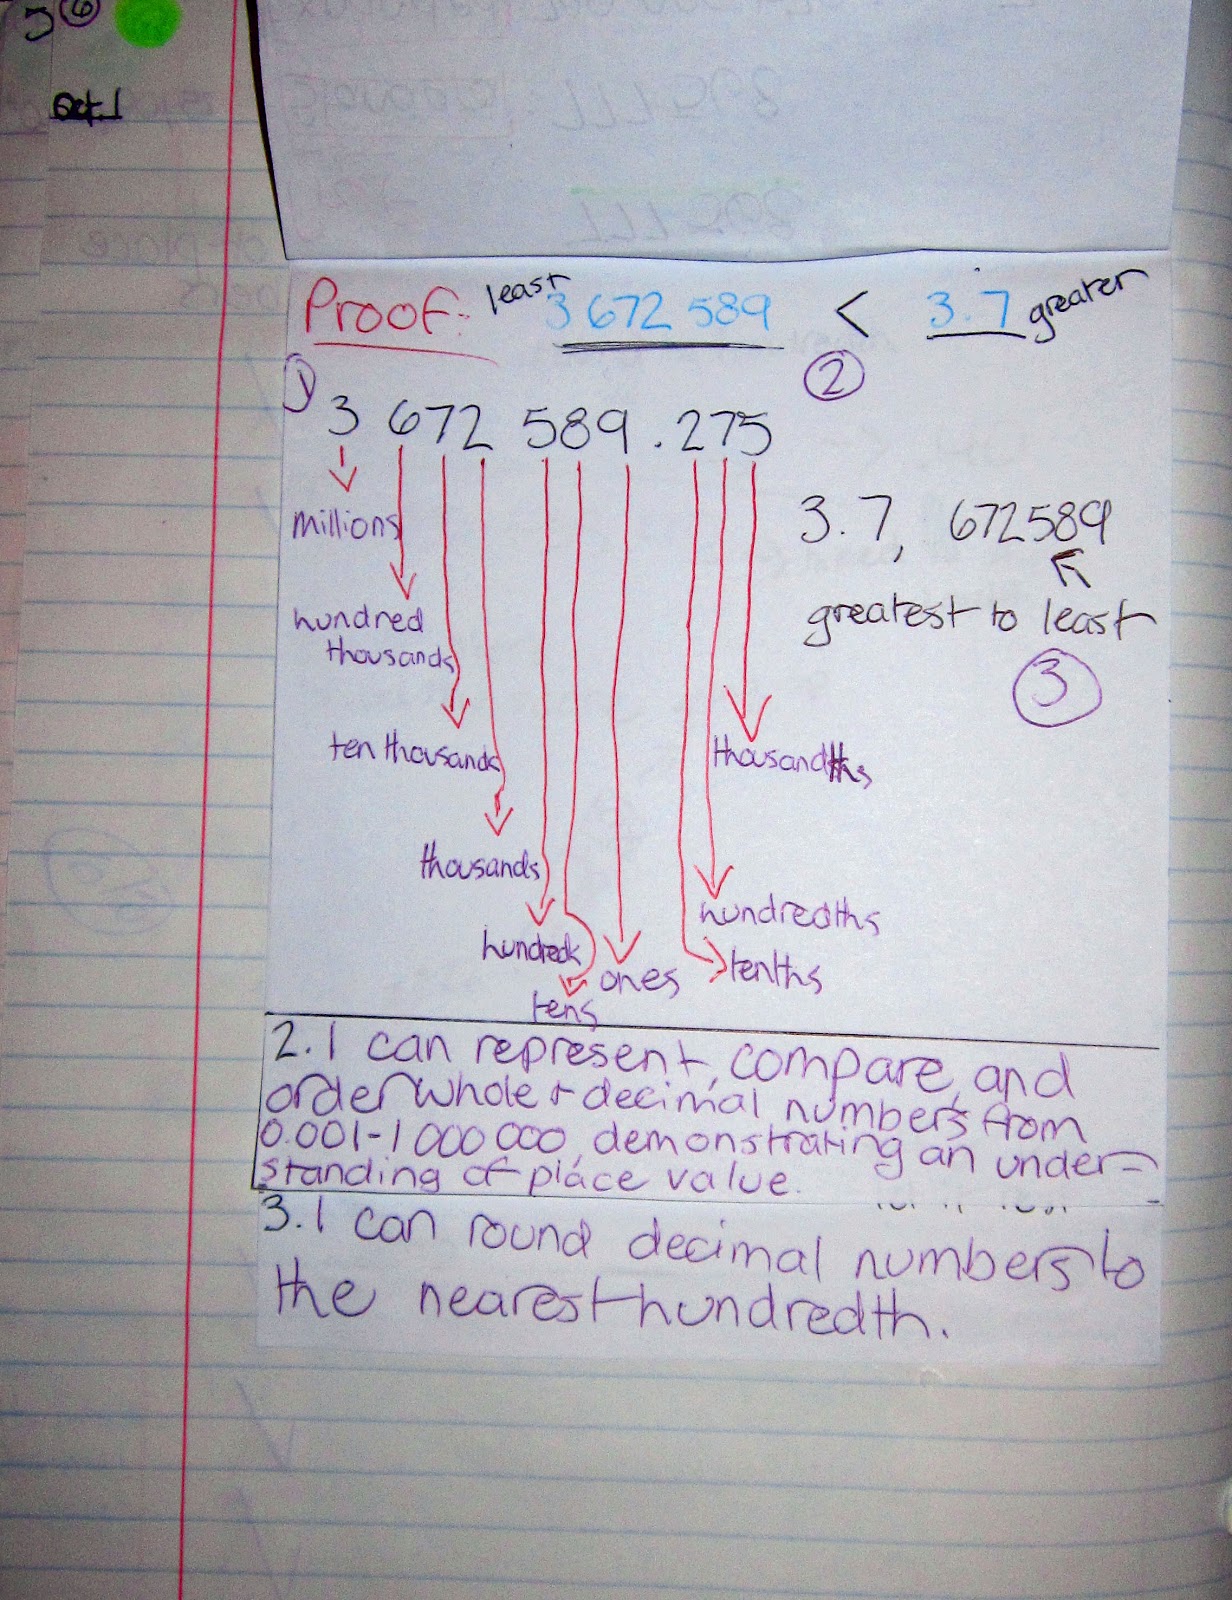 Oct. 1
Proof: least 3 672 589 < 3.7 greater
1
2
3 672 589 . 275
3.7, 672589
greatest to least
3
millions
hundred
thousands
ten thousands
thousands
hundreds
tens
ones
tenths
hundredths
thousandths
2. I can represent, compare, and
order whole + decimal numbers from
0.001-1 000 000, demonstrating an under-
standing of place value.
3. I can round decimal numbers to
the nearest hundredth.